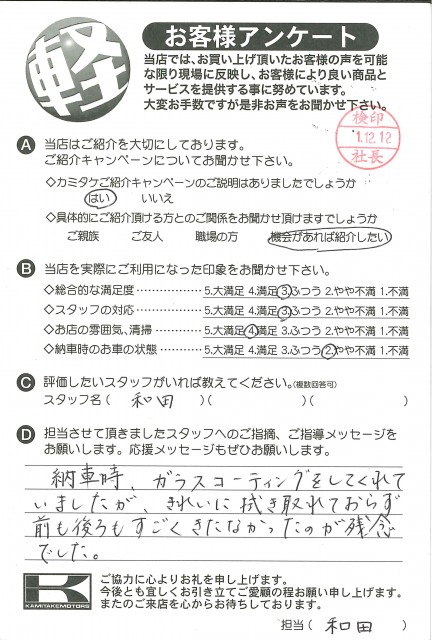 軽
お客様アンケート
当店では、お買い上げ頂いたお客様の声を可能
な限り現場に反映し、お客様により良い商品と
サービスを提供する事に努めています。
大変お手数ですが是非お声をお聞かせ下さい。
検印
1.12.12
社長
A 当店はご紹介を大切にしております。
ご紹介キャンペーンについてお聞かせ下さい。
◇カミタケご紹介キャンペーンのご説明はありましたでしょうか
はい いいえ
◇具体的にご紹介頂ける方とのご関係をお聞かせ頂けますでしょうか
ご親族 ご友人 職場の方 機会があれば紹介したい
B 当店を実際にご利用になった印象をお聞かせ下さい。
◇総合的な満足度 ⋯⋯⋯⋯⋯ 5.大満足 4.満足 3.ふつう 2.やや不満 1.不満
◇スタッフの対応 ⋯⋯⋯⋯⋯ 5.大満足 4.満足 3.ふつう 2.やや不満 1.不満
◇お店の雰囲気、清掃 ⋯⋯⋯ 5.大満足 4.満足 3.ふつう 2.やや不満 1.不満
◇納車時のお車の状態 ⋯⋯⋯ 5.大満足 4.満足 3.ふつう 2.やや不満 1.不満
C 評価したいスタッフがいれば教えてください。(複数回答可)
スタッフ名( 和田 )( )( )
D 担当させて頂きましたスタッフへのご指摘、ご指導メッセージを
お願いします。応援メッセージもぜひお願いします。
納車時、ガラスコーティングをしてくれて
いましたが、きれいに拭き取れておらず
前も後ろもすごくきたなかったのが残念
でした。
K
KAMITAKEMOTORS
ご協力に心よりお礼を申し上げます。
今後とも宜しくお引き立てご愛顧の程お願い申し上げます。
またのご来店を心からお待ちしております。
担当( 和田 )